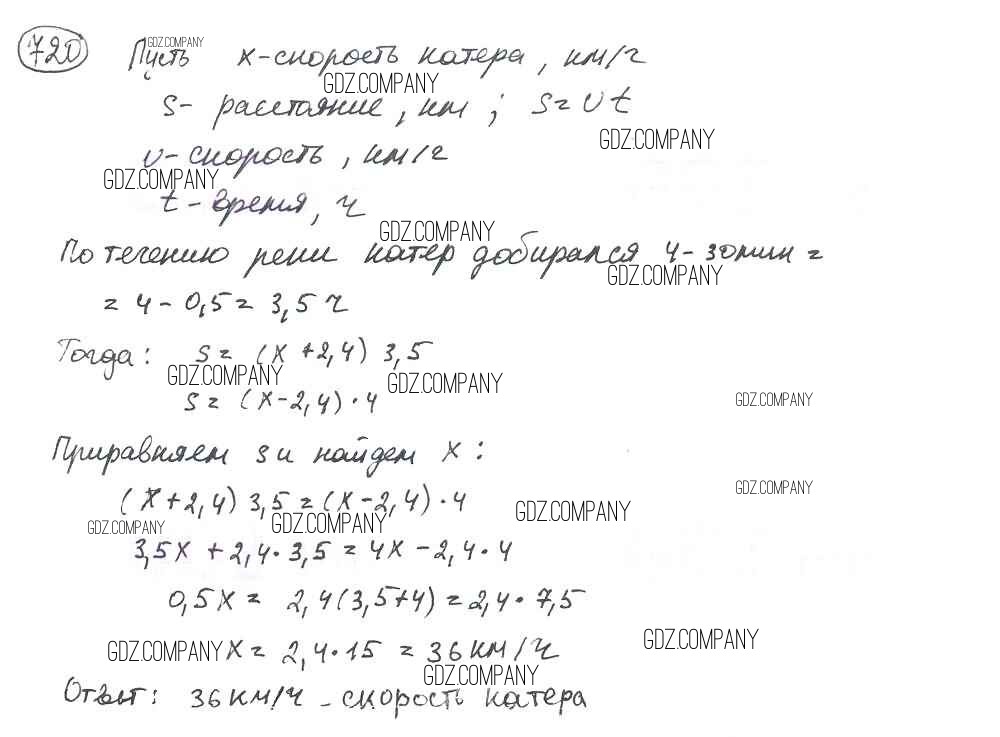 720 Пусть x - скорость катера, км/ч
GDZ.COMPANY
GDZ.COMPANY
S - расстояние, км; S = υt
GDZ.COMPANY
υ - скорость, км/ч
GDZ.COMPANY
t - время, ч
GDZ.COMPANY
По течению реки катер добирался 4 - 30 мин =
GDZ.COMPANY
= 4 - 0,5 = 3,5 ч
Тогда: S = (x + 2,4) 3,5
GDZ.COMPANY
GDZ.COMPANY
S = (x - 2,4) · 4
GDZ.COMPANY
Приравняем S и найдем x:
GDZ.COMPANY
(x + 2,4) 3,5 = (x - 2,4) · 4
GDZ.COMPANY
GDZ.COMPANY
GDZ.COMPANY
3,5x + 2,4 · 3,5 = 4x - 2,4 · 4
0,5x = 2,4 (3,5 + 4) = 2,4 · 7,5
GDZ.COMPANY
GDZ.COMPANY
x = 2,4 · 15 = 36 км/ч
GDZ.COMPANY
Ответ: 36 км/ч - скорость катера